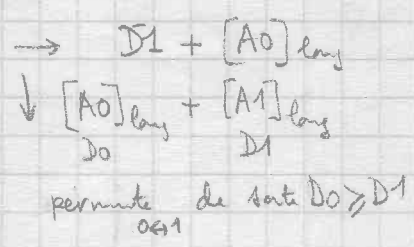 → D1 + [A0] long
↓ [A0] long + [A1] long
D0 D1
permute de sorte D0 ⩾ D1
0↔1